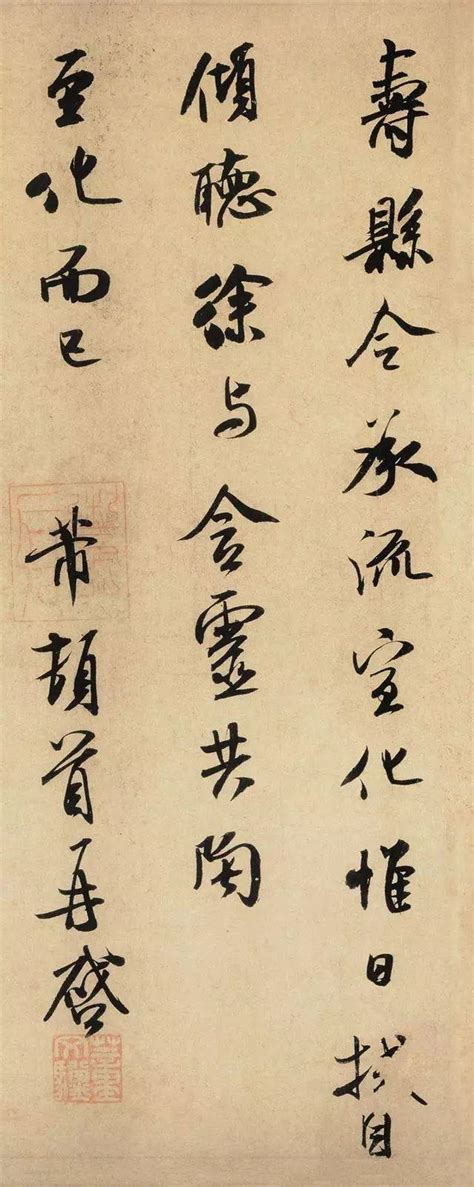 壽縣令承流宣化惟日拭目
傾聽徐与含靈共陶
至化而已 芾頓首再啓